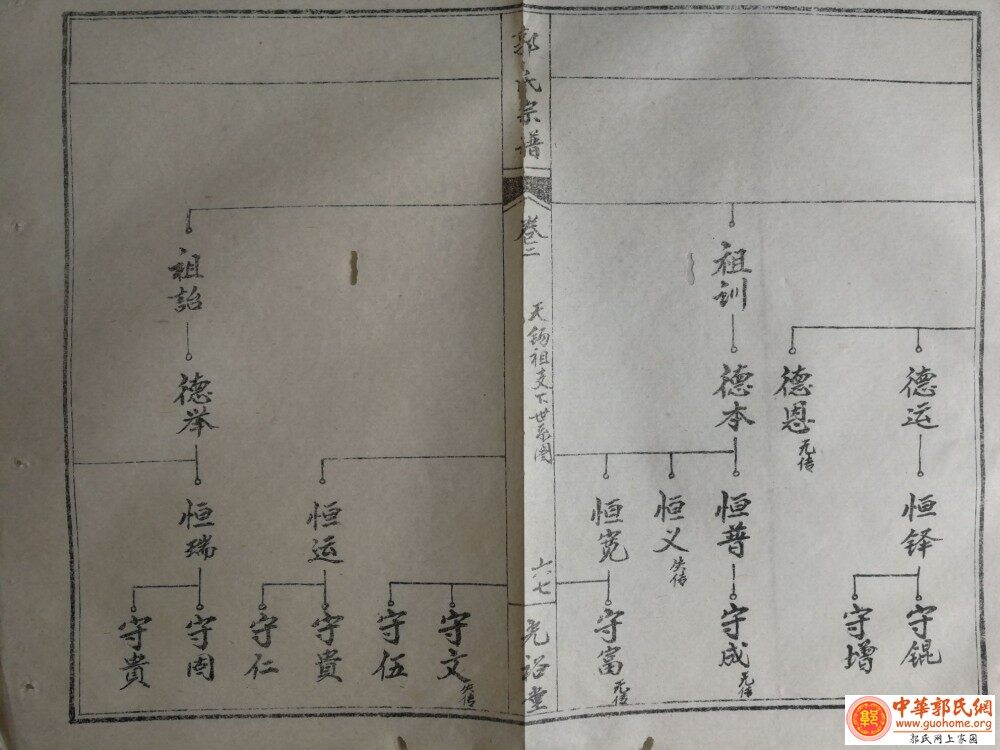 郭氏宗谱
卷二
天錫祖支下世系图
六七
光裕堂
祖训
祖詒
德运
德恩 无传
德本
德举
恒铎
恒普
恒义 失传
恒宽
恒运
恒瑞
守锟
守增
守成 无传
守富 无传
守文 失传
守伍
守貴
守仁
守固
守貴
中華郭氏網
www.guohome.org
郭氏网上家园